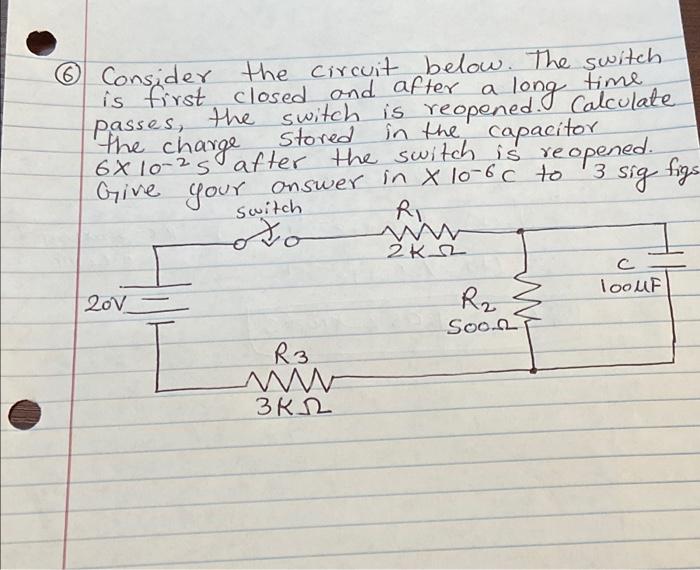 6 Consider the circuit below. The switch
is first closed and after a long time
passes, the switch is reopened. Calculate
the charge stored in the capacitor
6X10-2s after the switch is reopened.
Give your answer in X10-6C to 3 sig figs
switch
R1
2KΩ
C
100uF
20V
R2
500Ω
R3
3KΩ